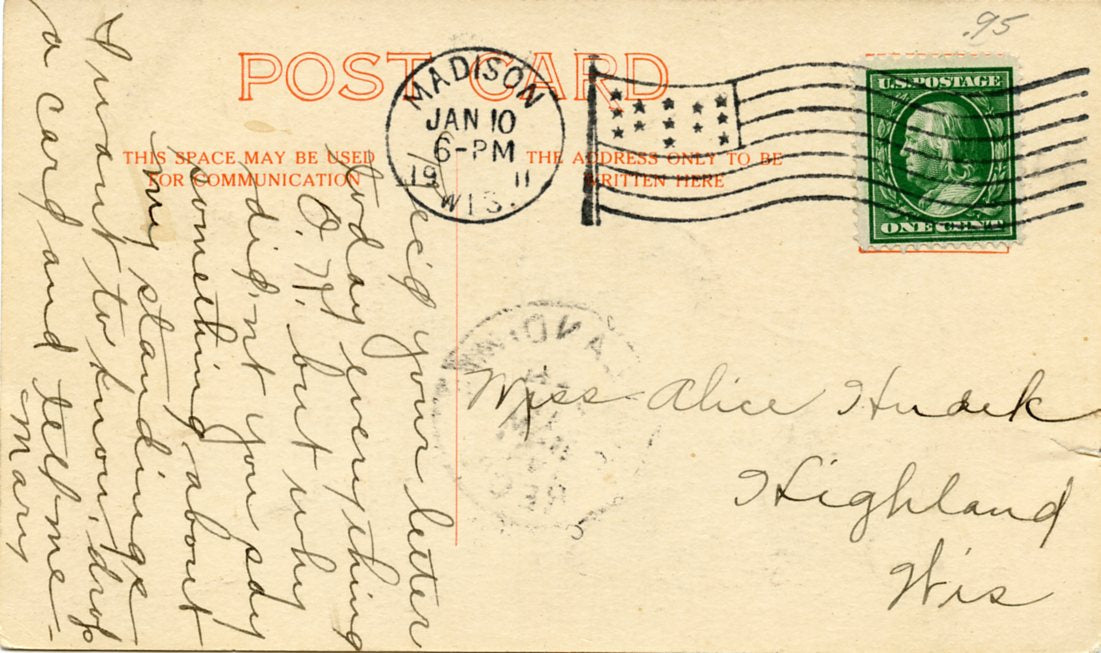 .95
POST CARD
MADISON
JAN 10
6-PM
19 11
WIS.
U.S. POSTAGE
ONE CENT
THIS SPACE MAY BE USED
FOR COMMUNICATION
THE ADDRESS ONLY TO BE
WRITTEN HERE
Rec'd your letter
today everything
O.K. but why
did,nt you say
something about
my standings
I want to know, drop
a card and tell me-
Mary
REC'D
Miss Alice Hudek
Highland
Wis